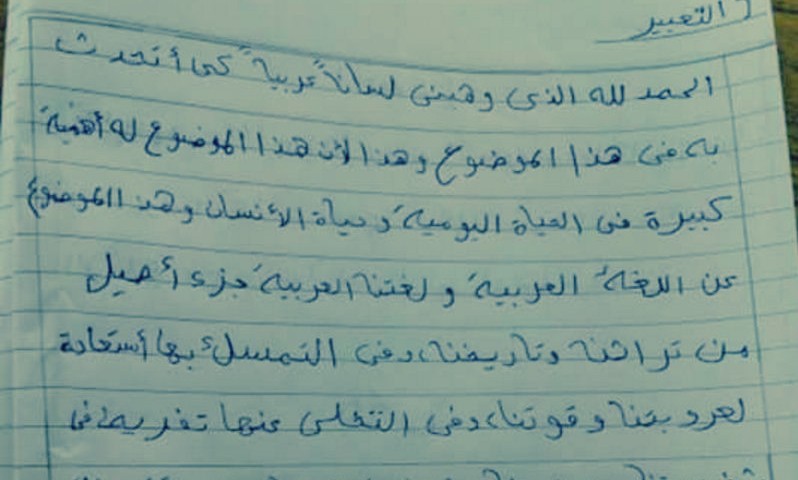 التعبير
الحمد لله الذى وهبنى لساناً عربيةً كى أتحدث
به فى هذا الموضوع وهذا لأن هذا الموضوع له أهمية
كبيرة فى الحياة اليومية وحياة الأنسان وهذ الموضوع
عن اللغة العربية ولغتنا العربية جزء أصيل
من تراثنا وتاريخنا، وفى التمسك بها أستعادة
لعروبتنا وقوتنا، وفى التخلى عنها تفريط فى